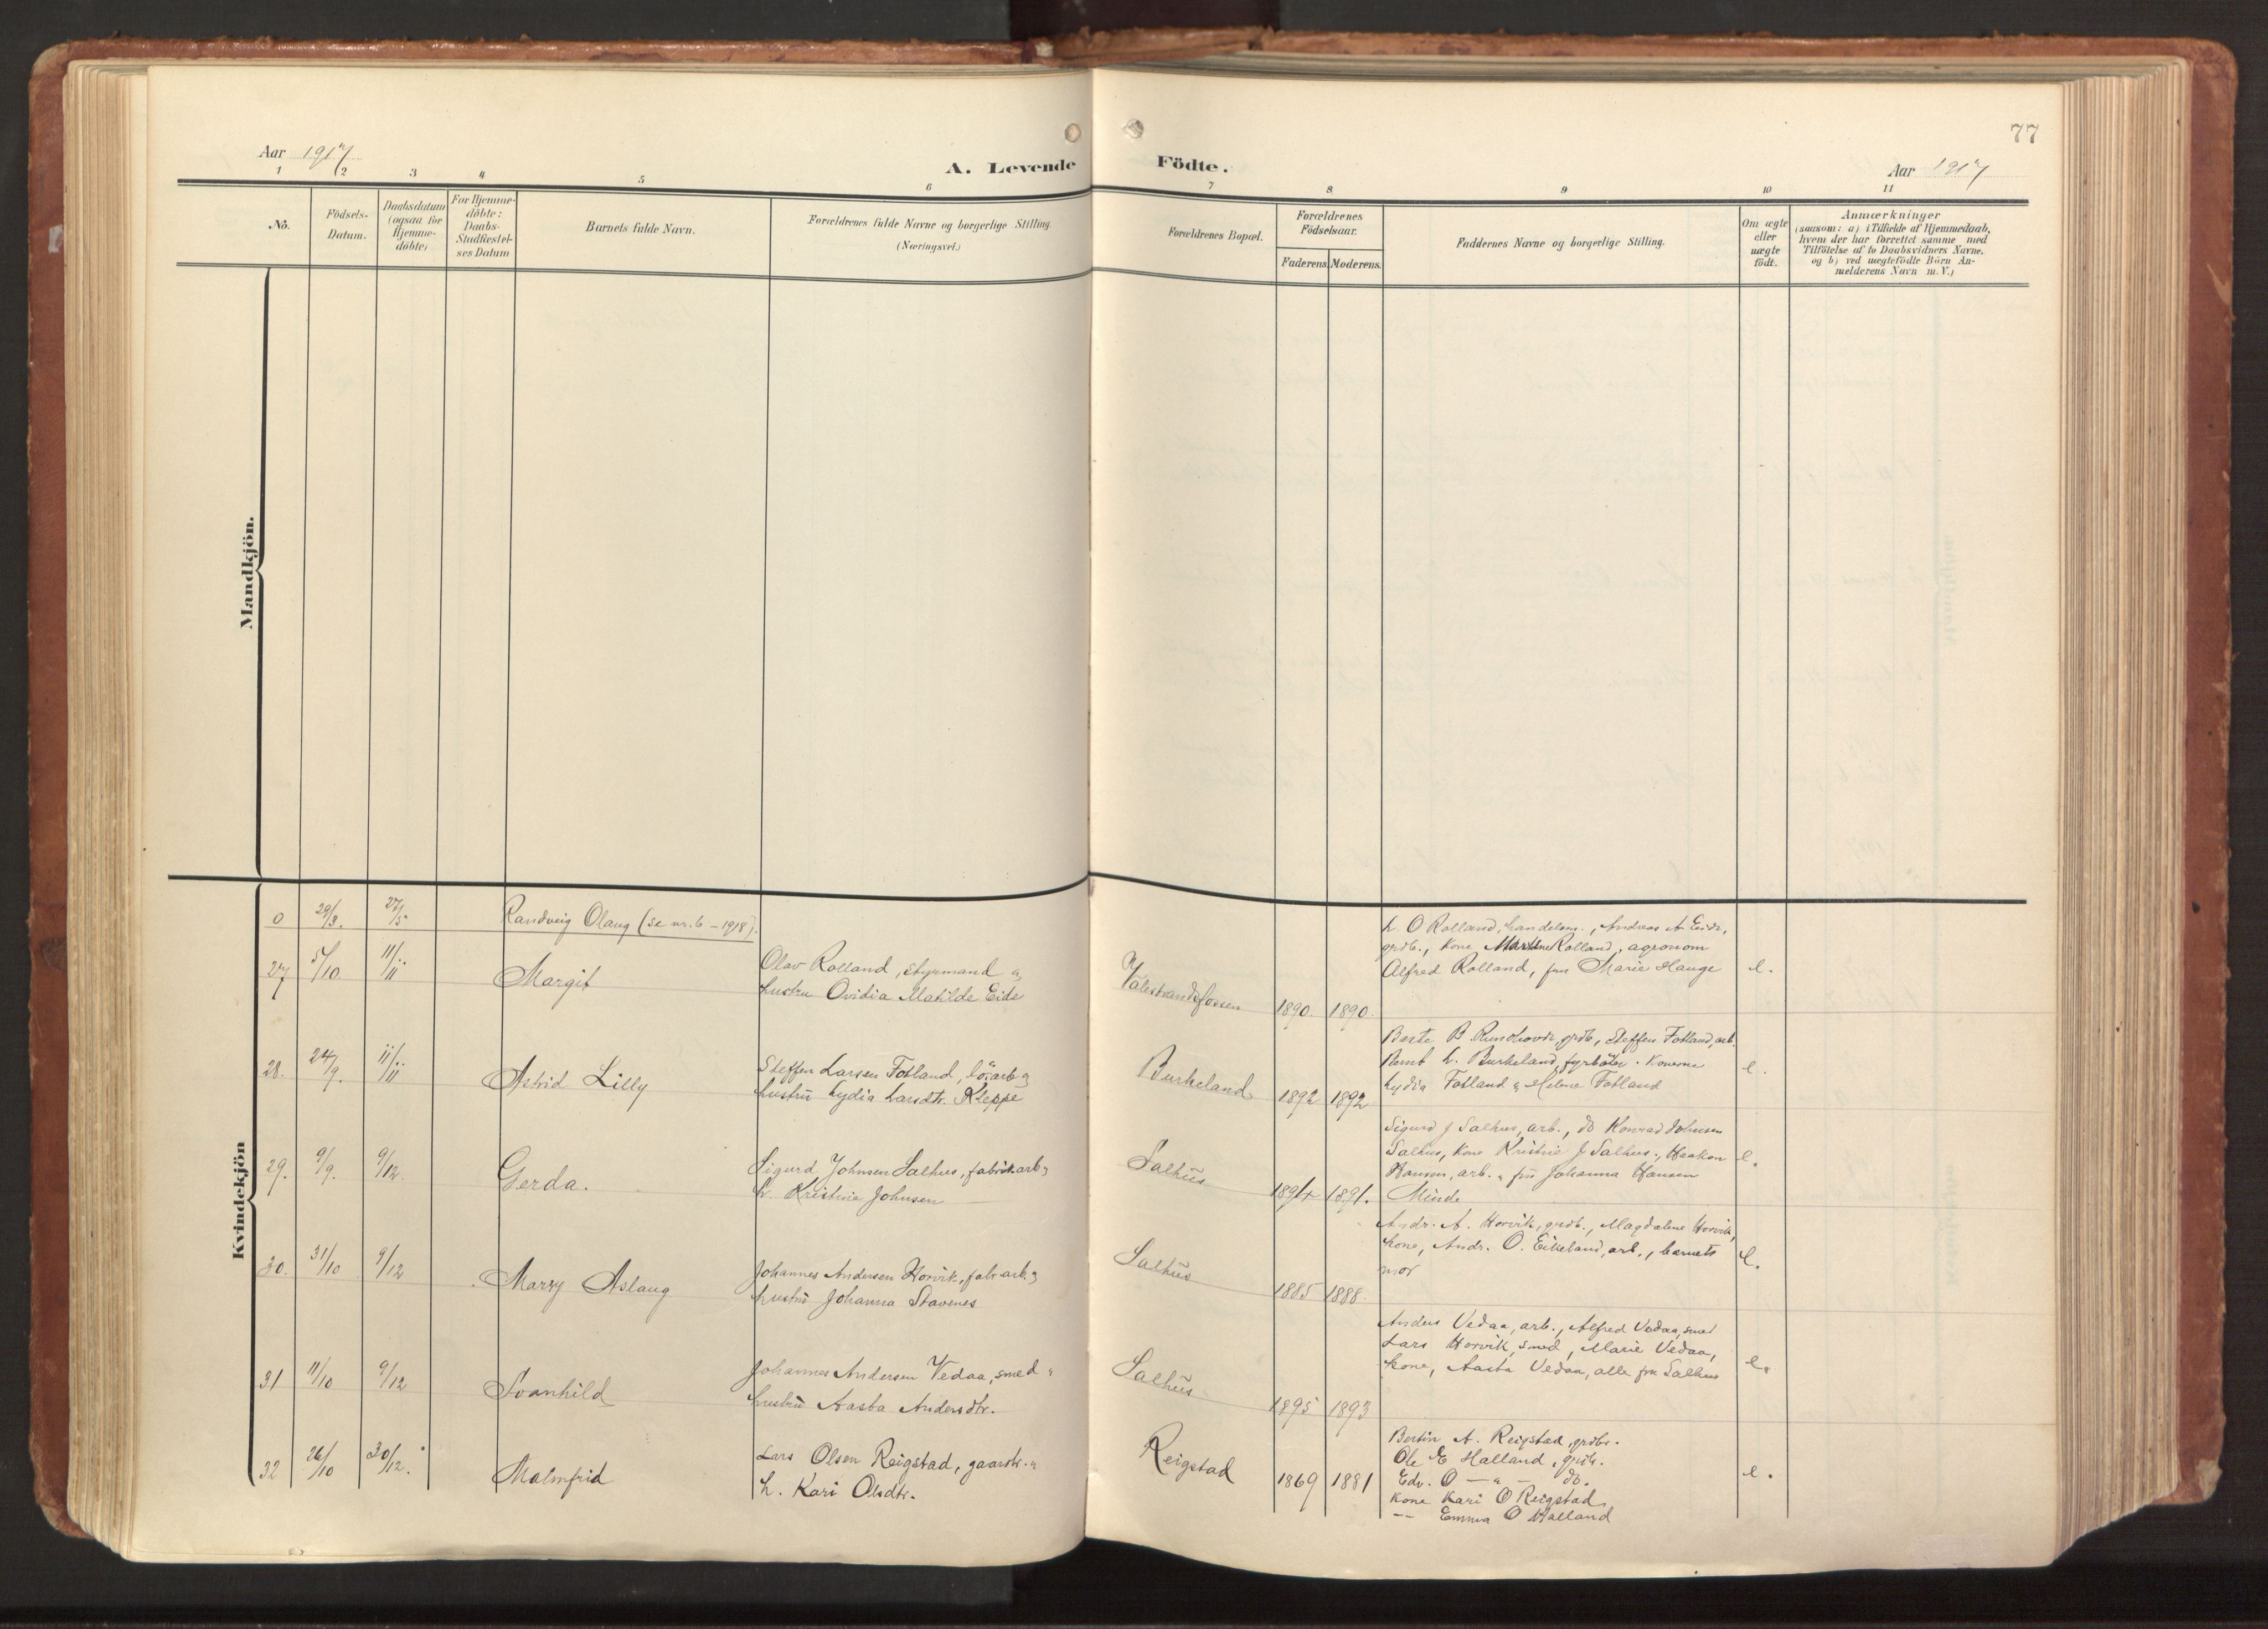 77
Aar 1917
A. Levende Födte.
Aar 1917
1 2 3 4 5 6 7 8 9 10 11
No.
Födsels-
Datum.
Daabsdatum
(ogsaa for
Hjemme-
döbte)
For Hjemme-
döbte:
Daabs-
Stadfæstel-
ses Datum
Barnets fulde Navn.
Forældrenes fulde Navne og borgerlige Stilling.
(Næringsvei.)
Forældrenes Bopæl.
Forældrenes
Födselsaar.
Faderens. Moderens.
Faddernes Navne og borgerlige Stilling.
Om ægte
eller
uægte
födt.
Anmærkninger
(saasom: a) i Tilfælde af Hjemmedaab,
hvem der har forrettet samme med
Tilföielse af to Daabsvidners Navne.
og b) ved uægtefödte Börn An-
melderens Navn m. V.)
Mandkjön.
Kvindekjön
0 29/3. 27/5 Randveig Olaug (se nr. 6 – 1918).
27 5/10. 11/11 Margit
Olav Rolland, styrmand
hustru Ovidia Matilde Eide
Valestrandsfossen 1890. 1890.
L O Rolland, handelsm., Andreas A Eide,
grdb., kone Rolland, agronom
Alfred Rolland, frk Marie Hauge
e.
28. 24/9. 11/11 Astrid Lilly
Steffen Larsen Fotland, arb
hustru Lydia Larsdtr. Kleppe
Burkeland 1892 1892
B grdb, Steffen Fotland, arb.
L. Burkeland, fyrböter. Konerne
Lydia Fotland Helene Fotland
e.
29. 9/9. 9/12. Gerda.
Sigurd Johnsen Salhus, fabrikarb
h. Kristine Johnsen
Salhus 1894 1891.
Sigurd J Salhus, arb., do Konrad Johnsen
Salhus, kone Kristine J Salhus, Haakon
Hansen, arb. frk Johanna Hansen
Minde
e.
30. 31/10 9/12 Marry Aslaug
Johannes Andersen Horvik, fabr. arb.
hustru Johanna Stavenes
Salhus 1885 1888.
Andr. A. Horvik, grdb., Magdalene Horvik,
kone, Andr. O. Eikeland, arb., barnets
mor
e.
31 11/10 9/12 Svanhild
Johannes Andersen Vedaa, smed
hustru Aasta Andersdtr.
Salhus 1895 1893
Anders Vedaa, arb., Alfred Vedaa, smed
Lars Horvik, smed, Marie Vedaa,
kone, Aasta Vedaa, alle fra Salhus
e.
32 26/10 30/12. Malmfrid
Lars Olsen Reigstad, gaardbr.
h. Kari Olsdtr.
Reigstad 1869 1881
A. Reigstad, grdbr.
Ole E Halland, grdb.
Edv. O — " — do.
kone Kari O Reigstad
— Emma O Halland
e.